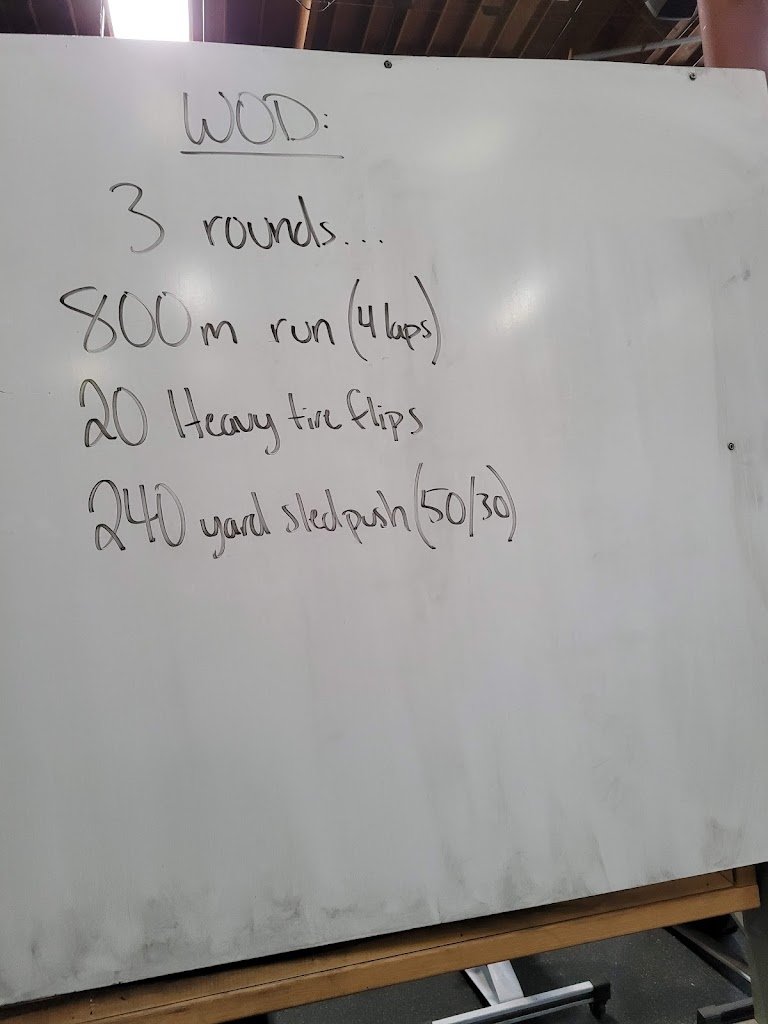 WOD:
3 rounds...
800m run (4 laps)
20 Heavy tire flips
240 yard sled push (50/30)